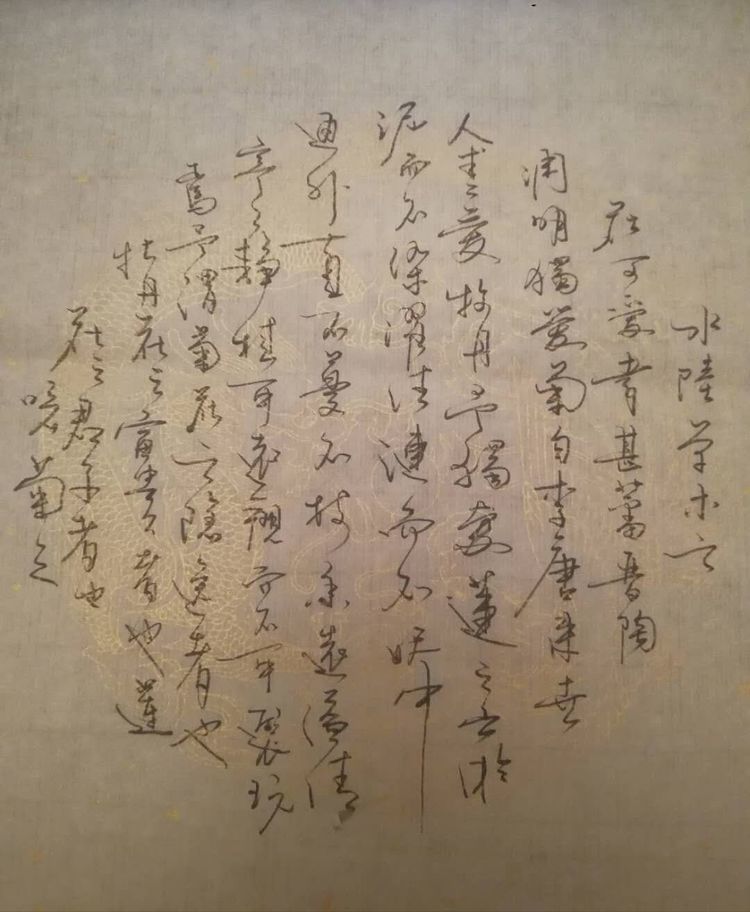 水陸草木之
花可愛者甚蕃晋陶
渊明獨愛菊自李唐来世
人甚愛牡丹予獨愛蓮之出淤
泥而不染濯清漣而不妖中
通外直不蔓不枝香遠益清
亭々静植可遠觀而不可褻玩
焉予謂菊花之隐逸者也
牡丹花之富貴者也蓮
花之君子者也
噫菊之